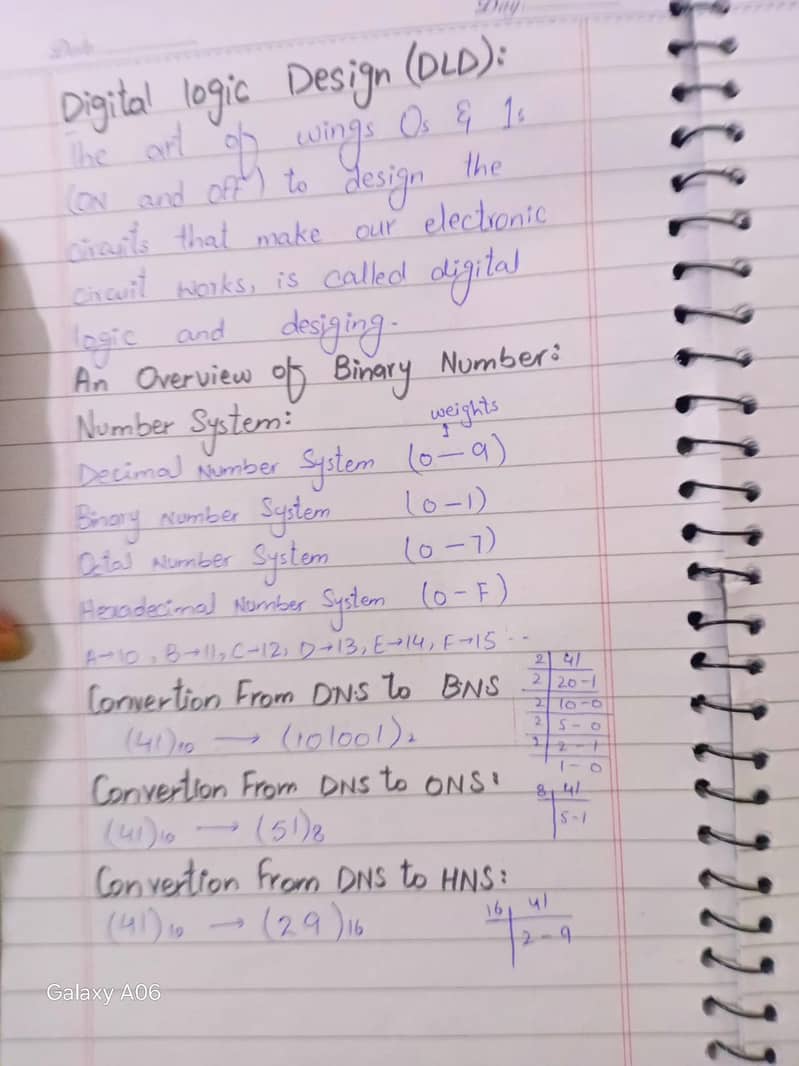 Day
Digital logic Design (DLD):
The art of wings 0s & 1s
(ON and OFF) to design the
circuits that make our electronic
circuit works, is called digital
logic and desiging.
An Overview of Binary Number:
Number System: weights
Decimal Number System (0-9)
Binary Number System (0-1)
Octal Number System (0-7)
Hexadecimal Number System (0-F)
A→10, B→11, C→12, D→13, E→14, F→15 --
Convertion From DNS to BNS
(41)10 → (101001)2
2 41
2 20-1
2 10-0
2 5-0
2 2-1
1-0
Convertion From DNS to ONS:
(41)10 → (51)8
8 41
5-1
Convertion From DNS to HNS:
(41)10 → (29)16
16 41
2-9
Galaxy A06